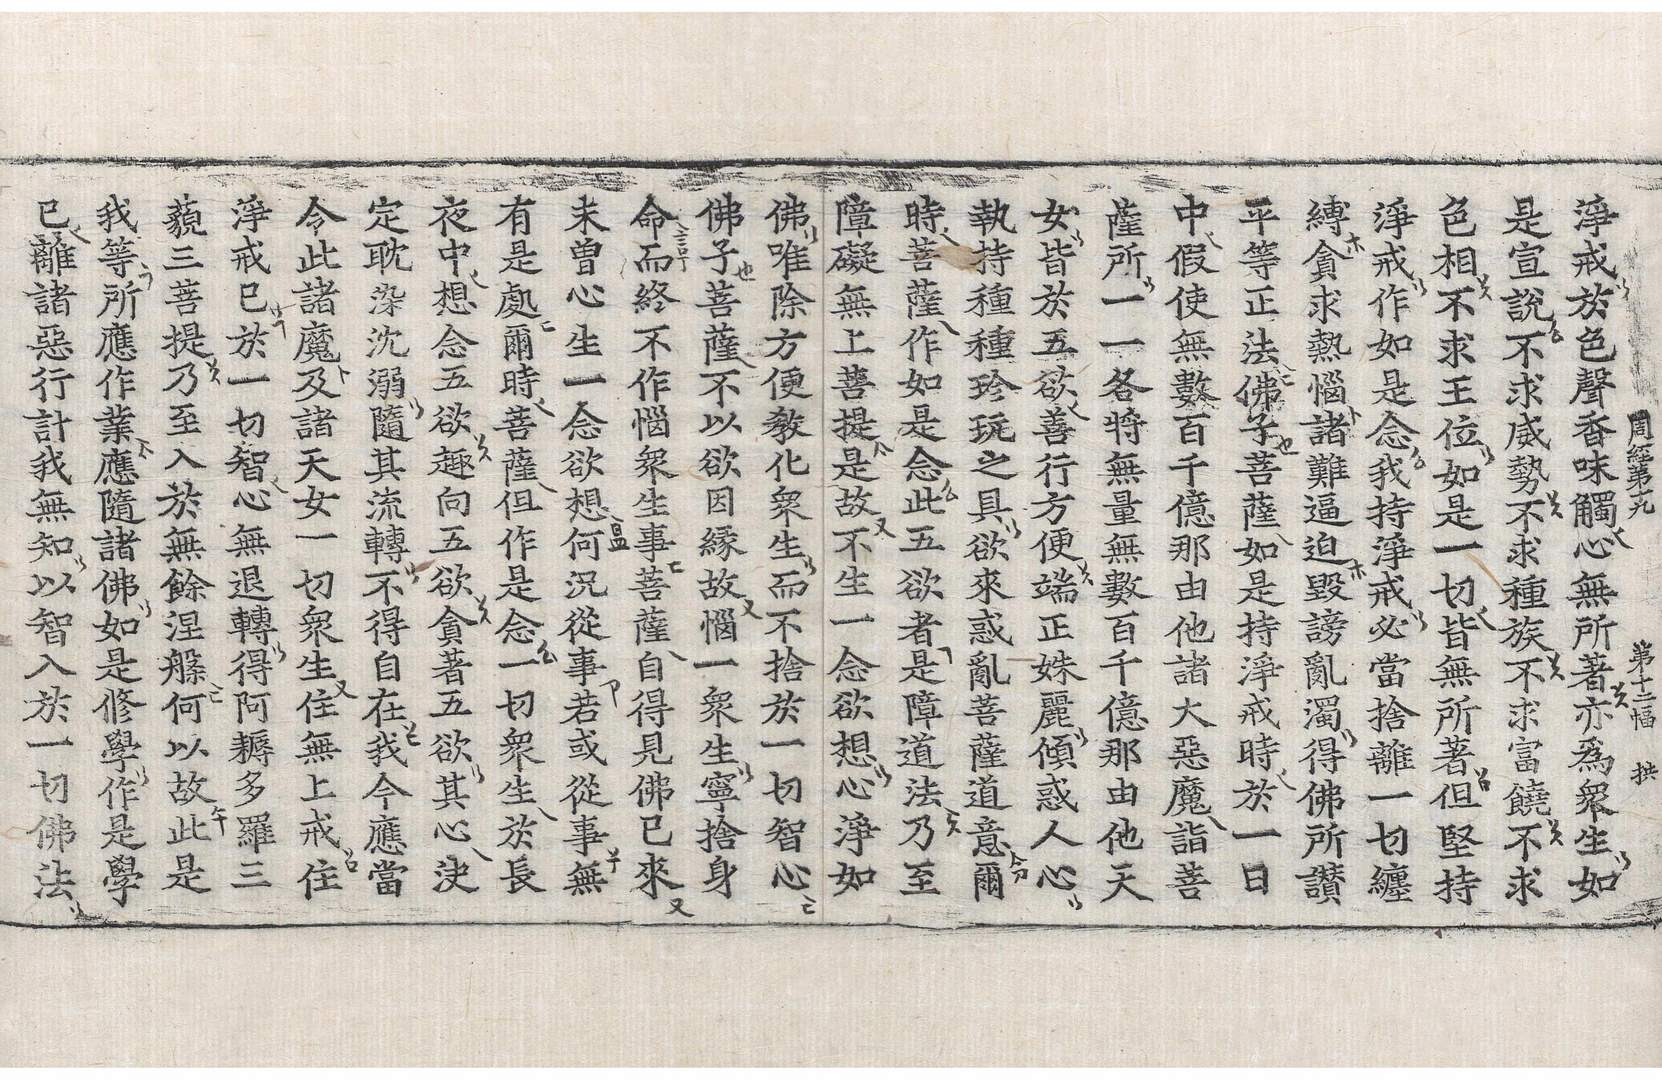 周經第十九 第十二幅 拱
淨戒於色聲香味觸心無所著亦爲衆生如
是宣說不求威勢不求種族不求富饒不求
色相不求王位如是一切皆無所著但堅持
淨戒作如是念我持淨戒必當捨離一切纏
縛貪求熱惱諸難逼迫毀謗亂濁得佛所讃
平等正法佛子菩薩如是持淨戒時於一日
中假使無數百千億那由他諸大惡魔詣菩
薩所一一各將無量無數百千億那由他天
女皆於五欲善行方便端正姝麗傾惑人心
執持種種珍玩之具欲來惑亂菩薩道意爾
時菩薩作如是念此五欲者是障道法乃至
障礙無上菩提是故不生一念欲想心淨如
佛唯除方便教化衆生而不捨於一切智心
佛子菩薩不以欲因緣故惱一衆生寧捨身
命而終不作惱衆生事菩薩自得見佛已來
未曾心生一念欲想何況從事若或從事無
有是處爾時菩薩但作是念一切衆生於長
夜中想念五欲趣向五欲貪著五欲其心決
定耽染沈溺隨其流轉不得自在我今應當
令此諸魔及諸天女一切衆生住無上戒住
淨戒已於一切智心無退轉得阿耨多羅三
藐三菩提乃至入於無餘涅槃何以故此是
我等所應作業應隨諸佛如是修學作是學
已離諸惡行計我無知以智入於一切佛法